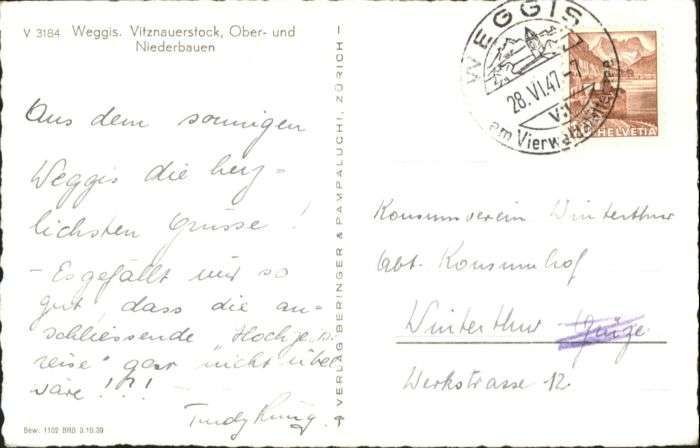 V 3184 Weggis. Vitznauerstock, Ober- und
Niederbauen
Aus dem sonnigen
Weggis die herz-
lichsten Grüsse!
- Es gefällt mir so
gut, dass die an-
schliessende "Hochzeits
reise" gar nicht übel
wäre!?!
Trudy
Bew. 1102 BRB 3.10.39
VERLAG BERINGER & PAMPALUCHI, ZÜRICH
WEGGIS
28.VI.47-7
am Vierwaldstättersee
HELVETIA
Konsumverein Winterthur
Abt. Konsumhof
Winterthur
Werkstrasse 12.